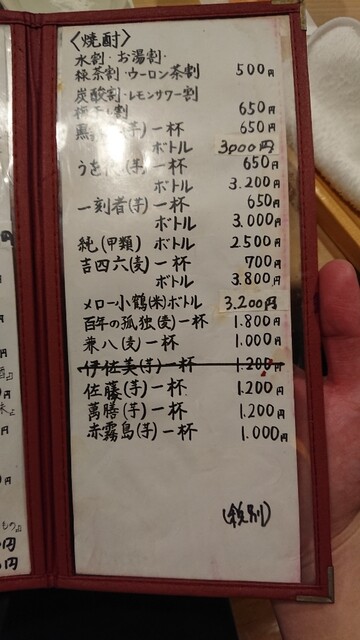 〈焼酎〉
水割・お湯割・
緑茶割・ウーロン茶割 500円
炭酸割・レモンサワー割
割 650円
黒 (芋) 一杯 650円
ボトル 3000円
うき (芋) 一杯 650円
ボトル 3.200円
一刻者(芋)一杯 650円
ボトル 3.000円
純(甲類) ボトル 2500円
吉四六(麦)一杯 700円
ボトル 3.800円
メロー小鶴(米)ボトル 3.200円
百年の孤独(麦)一杯 1.800円
兼八(麦)一杯 1.000円
伊佐美(芋)一杯 1.200円
佐藤(芋)一杯 1.200円
萬膳(芋)一杯 1.200円
赤霧島(芋)一杯 1.000円
(税別)